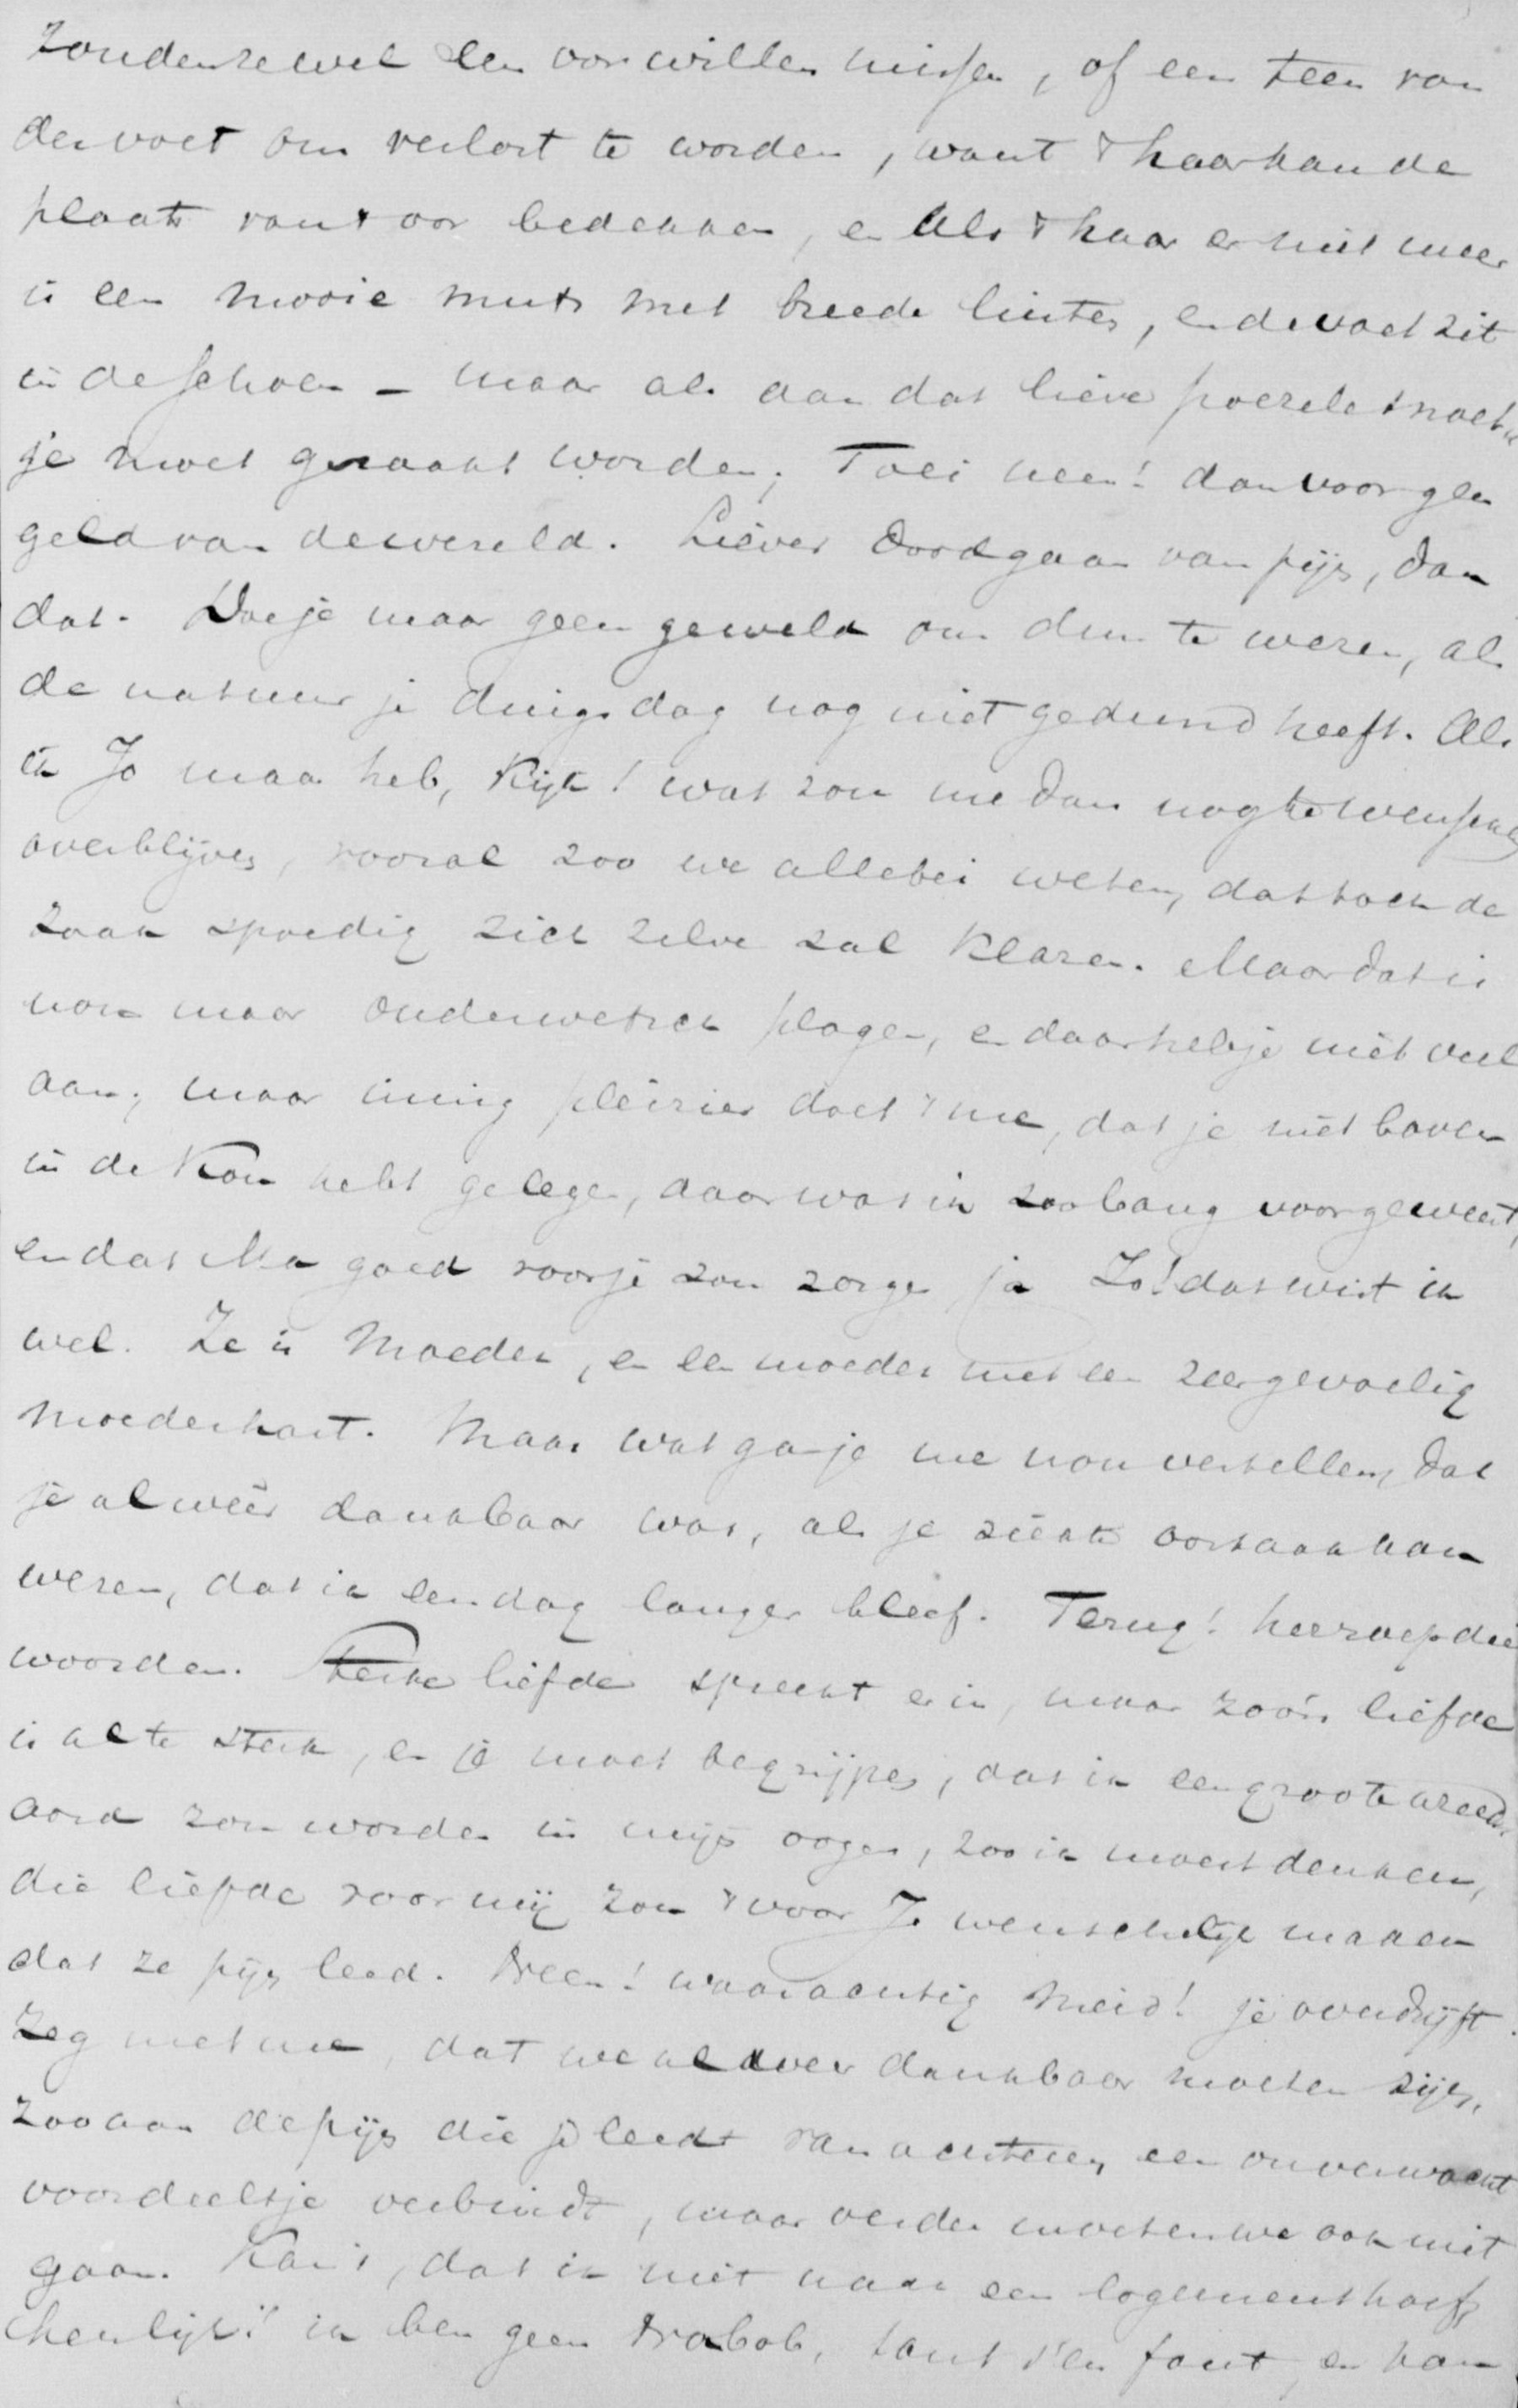 zouden ze wel een oor willen missen, of een teen van
der voet om verlost te worden, want 't haar kan de
plaats van 't oor bedekken, en als 't haar er niet meer
is een mooie muts met breede linten, en de voet zit
in de schoen – maar als aan dat lieve poezele snoet
je moet geraakt worden; Toei neen! dan voor geen
geld van de wereld. Liever doodgaan van pijn, dan
dat. Doe je maar geen geweld om dun te wezen, als
de natuur je dinsdag nog niet gedund heeft. Als
ik Jo maar heb, Kijk! wat zou me dan nog te wenschen
overblijven, vooral zoo we allebei weten, dat toch de
zaak spoedig zich zelve zal klaren. Maar dat is
nou maar ouderwetsch plagen, en daar heb je niet veel
aan; maar innig pleizier doet 't me, dat je niet boven
in de Kou hebt gelegen, daar was ik zoo bang voor geweest,
en dat Ma goed voor je zou zorgen ja Jo! dat wist ik
wel. Ze is Moeder, en een moeder met een zeer gevoelig
moederhart. Maar wat ga je me nou vertellen, dat
je alweêr dankbaar was, als je ziekte oorzaak kan
wezen, dat ik een dag langer bleef. Terug! herroep die
woorden. Sterke liefde spreekt er in, maar zoo'n liefde
is al te sterk, en je moet begrijpen, dat ik een groote wreed
aard zou worden in mijn oogen, zoo ik moest denken,
die liefde voor mij zou 't voor Jo wenschelijk maken
dat ze pijn leed. Neen! waarachtig Meid! je overdrijft.
Zeg met me, dat we al zeer dankbaar moeten zijn,
zoo aan de pijn die je leedt van achteren een onverwacht
voordeeltje verbindt, maar verder moeten we ook niet
gaan. Kan 't, dat ik niet naar een logement hoef,
heerlijk! ik ben geen Nabob, tant s'en faut, en kan